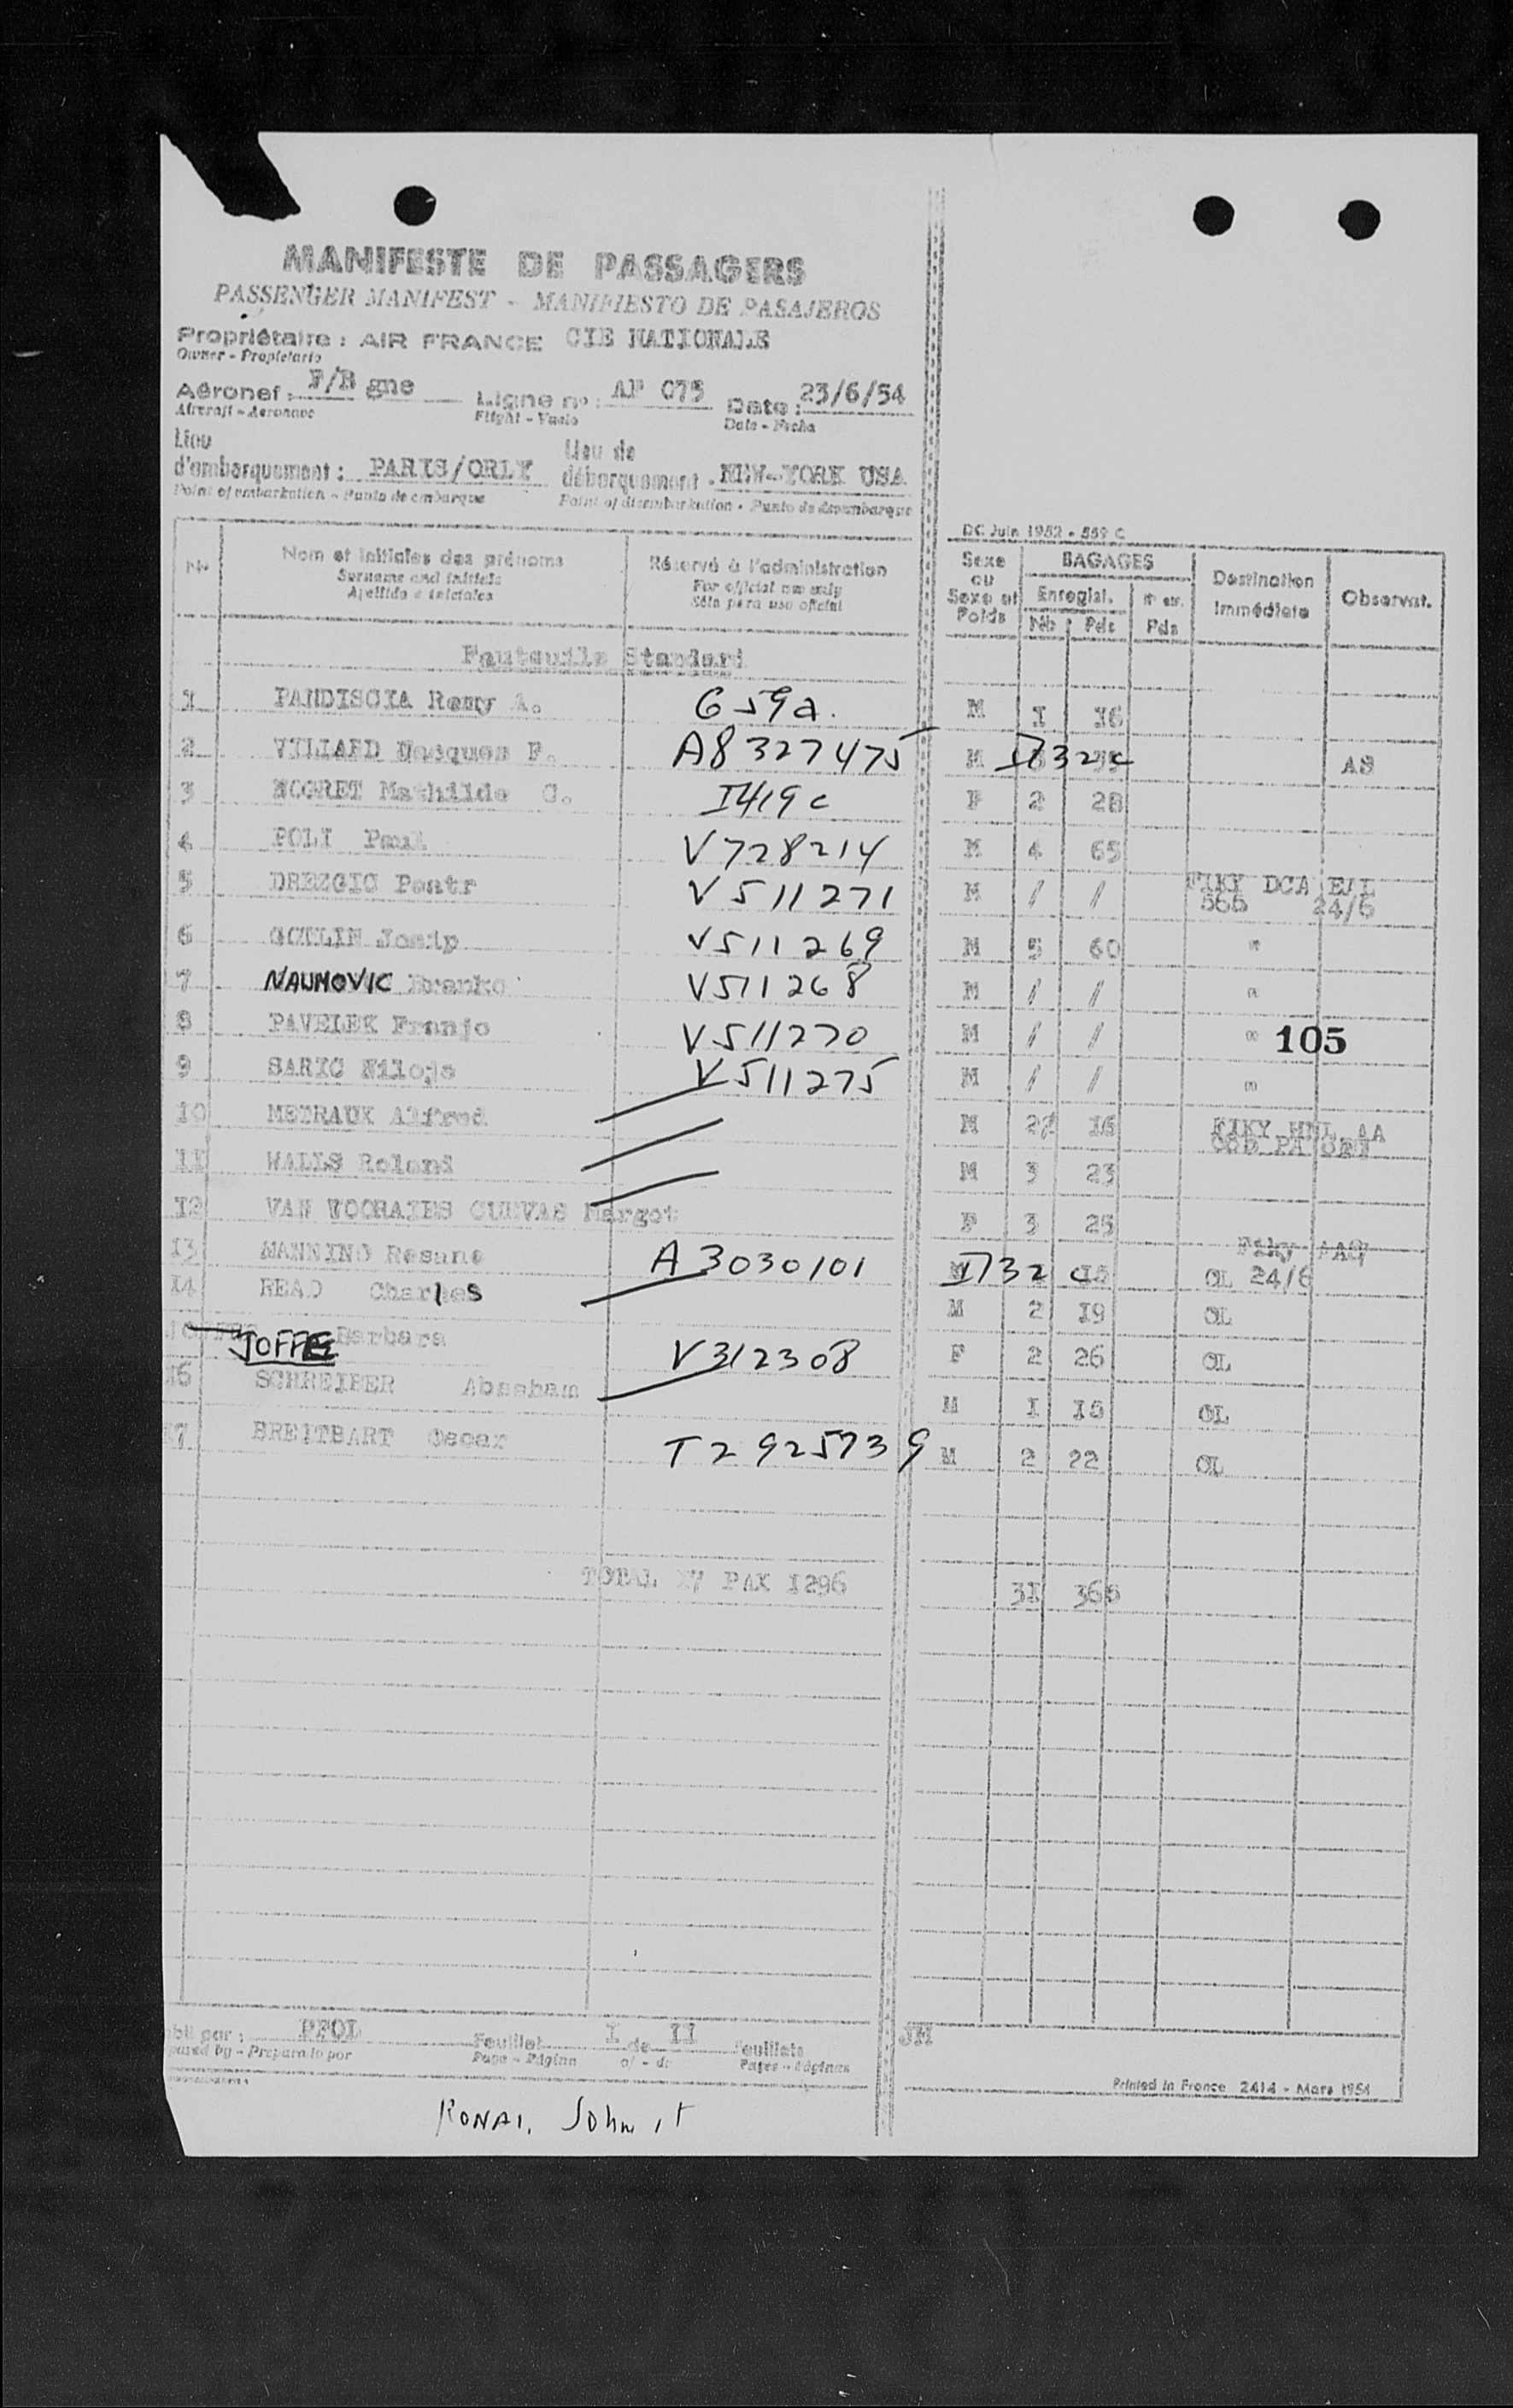 MANIFESTE DE PASSAGERS
PASSENGER MANIFEST - MANIFIESTO DE PASAJEROS
Propriétaire : AIR FRANCE CIE NATIONALE
Owner - Propietario
Aéronef : F/B gne Ligne n° : AF 075 Date : 23/6/54
Aircraft - Aeronave Flight - Vuelo Date - Fecha
Lieu d'embarquement : PARIS/ORLY Lieu de débarquement : NEW-YORK USA
Point of embarkation - Punto de embarque Point of disembarkation - Punto de desembarque
DC Juin 1952 - 559 C
N° Nom et initiales des prénoms Réservé à l'administration Sexe ou Sexe et Poids BAGAGES Destination Immédiate Observat.
Surname and initials For official use only Enregist. Nb Pds Pds
Apellido e iniciales Sólo para uso oficial
Fauteuils Standard
1 PANDISCIA Remy A. G59a. M I 16
2 VILLARD Jacques F. A8 327475 M I732c AS
3 NOGRET Mathilde C. I419c F 2 28
4 POLI Paul V728214 M 4 65
5 DREZGIC Peatr V511271 M / / FIKY DCA E/L 565 24/6
6 GOTLIN Josip V511269 M 5 60 "
7 NAUMOVIC Branko V511268 M / / "
8 PAVELEK Franjo V511270 M / / " 105
9 SARIC V511275 M / / "
10 METRAUX Alfred M 2 16 FIKY HNL AA
11 WALLS Roland M 3 23
12 VAN CUEVAS Margot F 3 25
13 MANNINO Rosane A3030101 I732c 15 Fiky AA OL 24/6
14 READ Charles M 2 19 OL
JOFFE Barbara V312308 F 2 26 OL
16 SCHREIBER Abraham M I 15 OL
17 BREITBART Oscar T2925739 M 2 22 OL
TOTAL 17 PAX 1296 31 366
Etabli par : PFOL Feuillet I de II Feuillets JM
Prepared by - Preparado por Page - Página of - de Pages - Páginas
Printed in France 2414 - Mars 1954
RONAI,